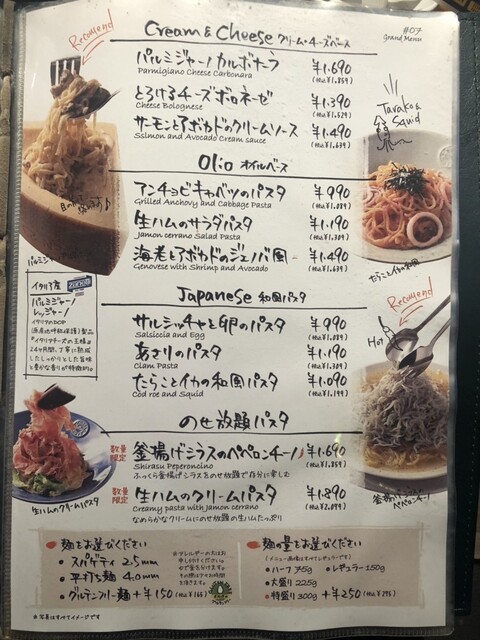 #07
Grand Menu
Recomend
Cream & Cheese クリーム・チーズベース
パルミジャーノカルボナーラ ¥1.690
Parmigiano Cheese Carbonara (tax.¥1.859)
とろけるチーズボロネーゼ ¥1.390
Cheese Bolognese (tax.¥1.529)
サーモンとアボカドのクリームソース ¥1.490
Sslmon and Avocado Cream sauce (tax.¥1.639)
Tarako & Squid
Olio オイルベース
アンチョビキャベツのパスタ ¥990
Grilled Anchovy and Cabbage Pasta (tax.¥1.089)
生ハムのサラダパスタ ¥1.190
Jamon cerrano Salad Pasta (tax.¥1.309)
海老とアボカドのジェノバ風 ¥1.490
Genovese with Shrimp and Avocado (tax.¥1.639)
たらことイカの和風
パルミジャ
イタリア産
パルミジャーノ
レッジャーノ
イタリアのDOP
(原産地呼称保護)製品
Japanese 和風パスタ
サルシッチャと卵のパスタ ¥990
Salsiccia and Egg (tax.¥1.089)
あさりのパスタ ¥1.190
Clam Pasta (tax.¥1.309)
たらことイカの和風パスタ ¥1.090
Cod roe and Squid (tax.¥1.199)
Recomend
Hot
のせ放題パスタ
数量限定 釜揚げシラスのペペロンチーノ ¥1.690
Shirasu Peperoncino (tax.¥1.859)
ふっくら釜揚げシラスをのせ放題で存分に楽しむ
数量限定 生ハムのクリームパスタ ¥1.890
Creamy pasta with Jamon cerrano (tax.¥2.079)
なめらかなクリームにのせ放題の生ハムたっぷり
生ハムのクリームパスタ
釜揚げシラスの
ペペロンチーノ
麺をお選びください
・スパゲティ 2.5mm
・平打ち麺 4.0mm
・グルテンフリー麺 +¥150 (¥165)
麺の量をお選びください
(メニュー表の価格は全てレギュラーです)
・ハーフ 75g ・レギュラー 150g
・大盛り 225g
・特盛り 300g +¥250 (¥275)
※写真はすべてイメージです